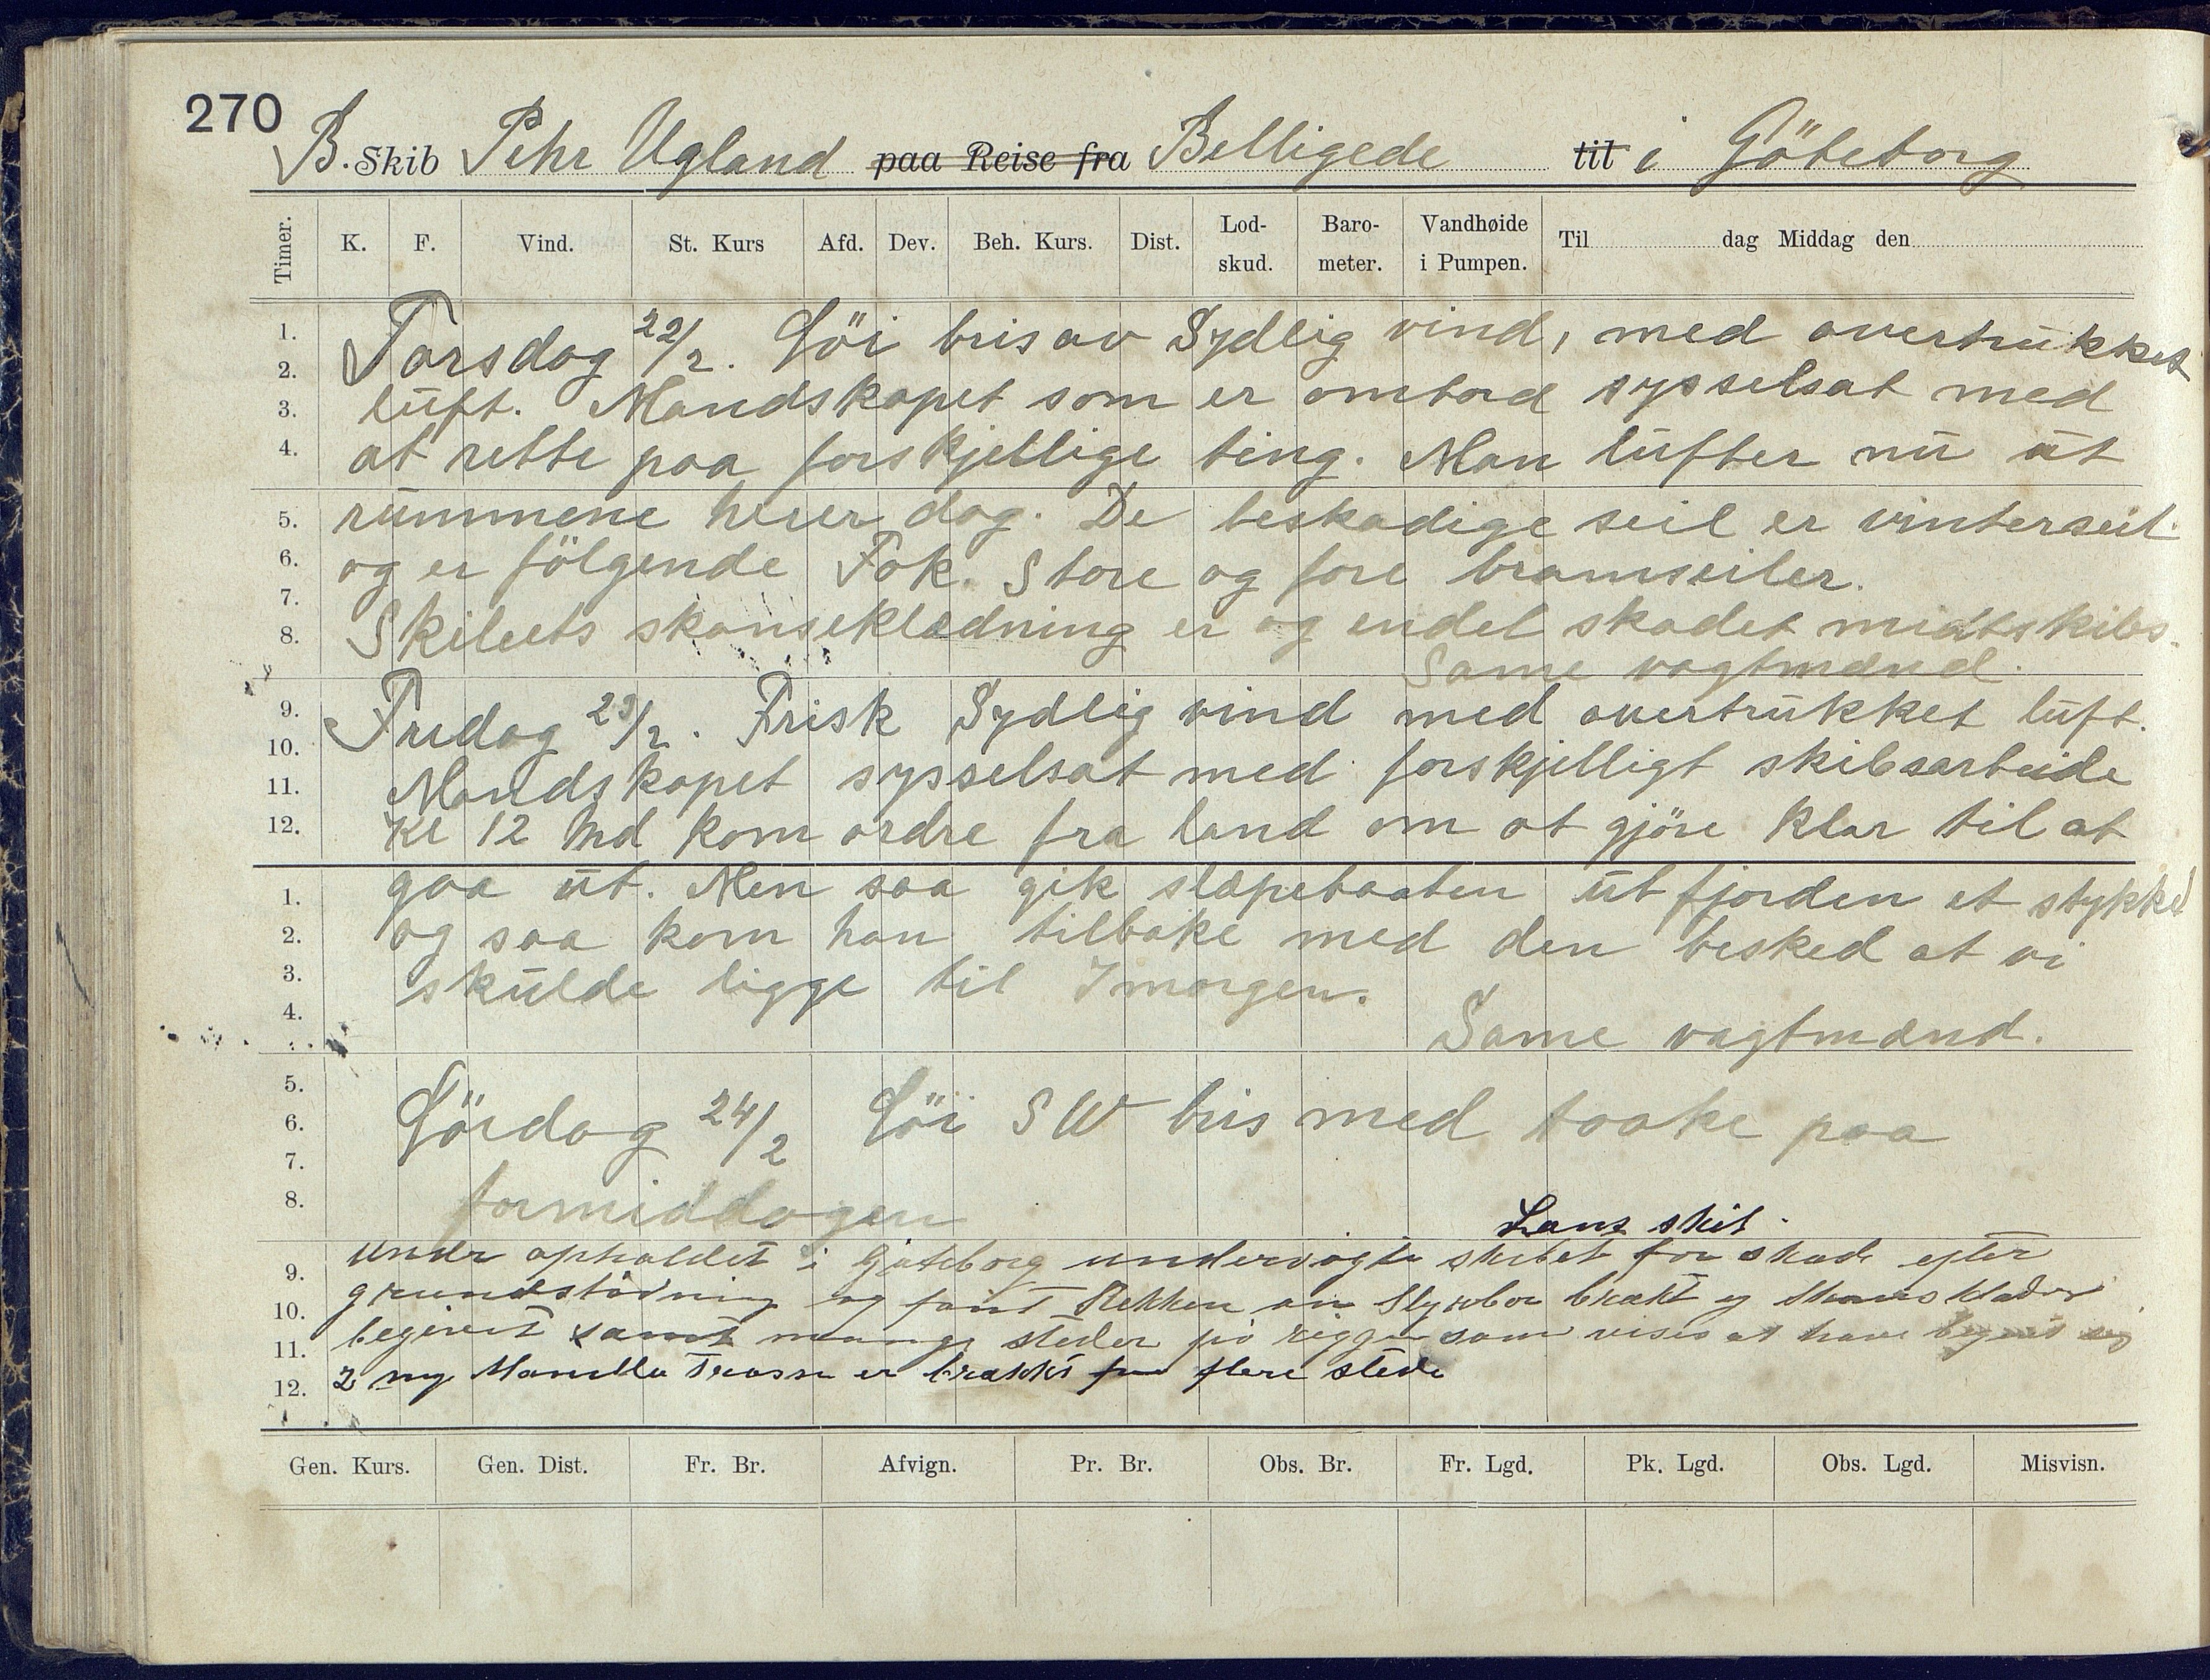 270
B. Skib Pehr Ugland paa Reise fra Belligede til i Göteborg
Timer. K. F. Vind. St. Kurs Afd. Dev. Beh. Kurs. Dist. Lod-skud. Baro-meter. Vandhøide i Pumpen. Til dag Middag den
1. Torsdag 22/2. Löi bris av Sydlig vind, med overtrukket
2.
3. luft. Mandskapet som er ombord sysselsat med
4. at rette paa forskjellige ting. Man lufter nu ut
5. rummene hver dag. De beskadige seil er vinterseil
6. og er fölgende Fok. Store og fore bramseiler.
7.
8. Skibets skanseklædning er og endel skadet midtskibs.
Same vagtmænd.
9. Fredag 23/2. Frisk Sydlig vind med overtrukket luft.
10.
11. Mandskapet sysselsat med forskjelligt skibsarbeide
12. Kl 12 Md kom ordre fra land om at gjöre klar til at
1. gaa ut. Men saa gik slæpebaaten ut fjorden et stykke
2. og saa kom han tilbake med den besked at vi
3. skulde ligge til Imorgen.
4. Same vagtmænd.
5.
6. Lördag 24/2 Löi SW bris med taake paa
7.
8. formiddagen
Lans skib.
9. Under opholdet i Gjøteborg undersøgte skibet for skade efter
10. grundstödning og fant Rekken on Styrbor brækt og Skansklæder
11. begivet samt mange steder på riggen som vises at have
12. 2 ny Manilla Trosser er brækkt flere stede
Gen. Kurs. Gen. Dist. Fr. Br. Afvign. Pr. Br. Obs. Br. Fr. Lgd. Pk. Lgd. Obs. Lgd. Misvisn.